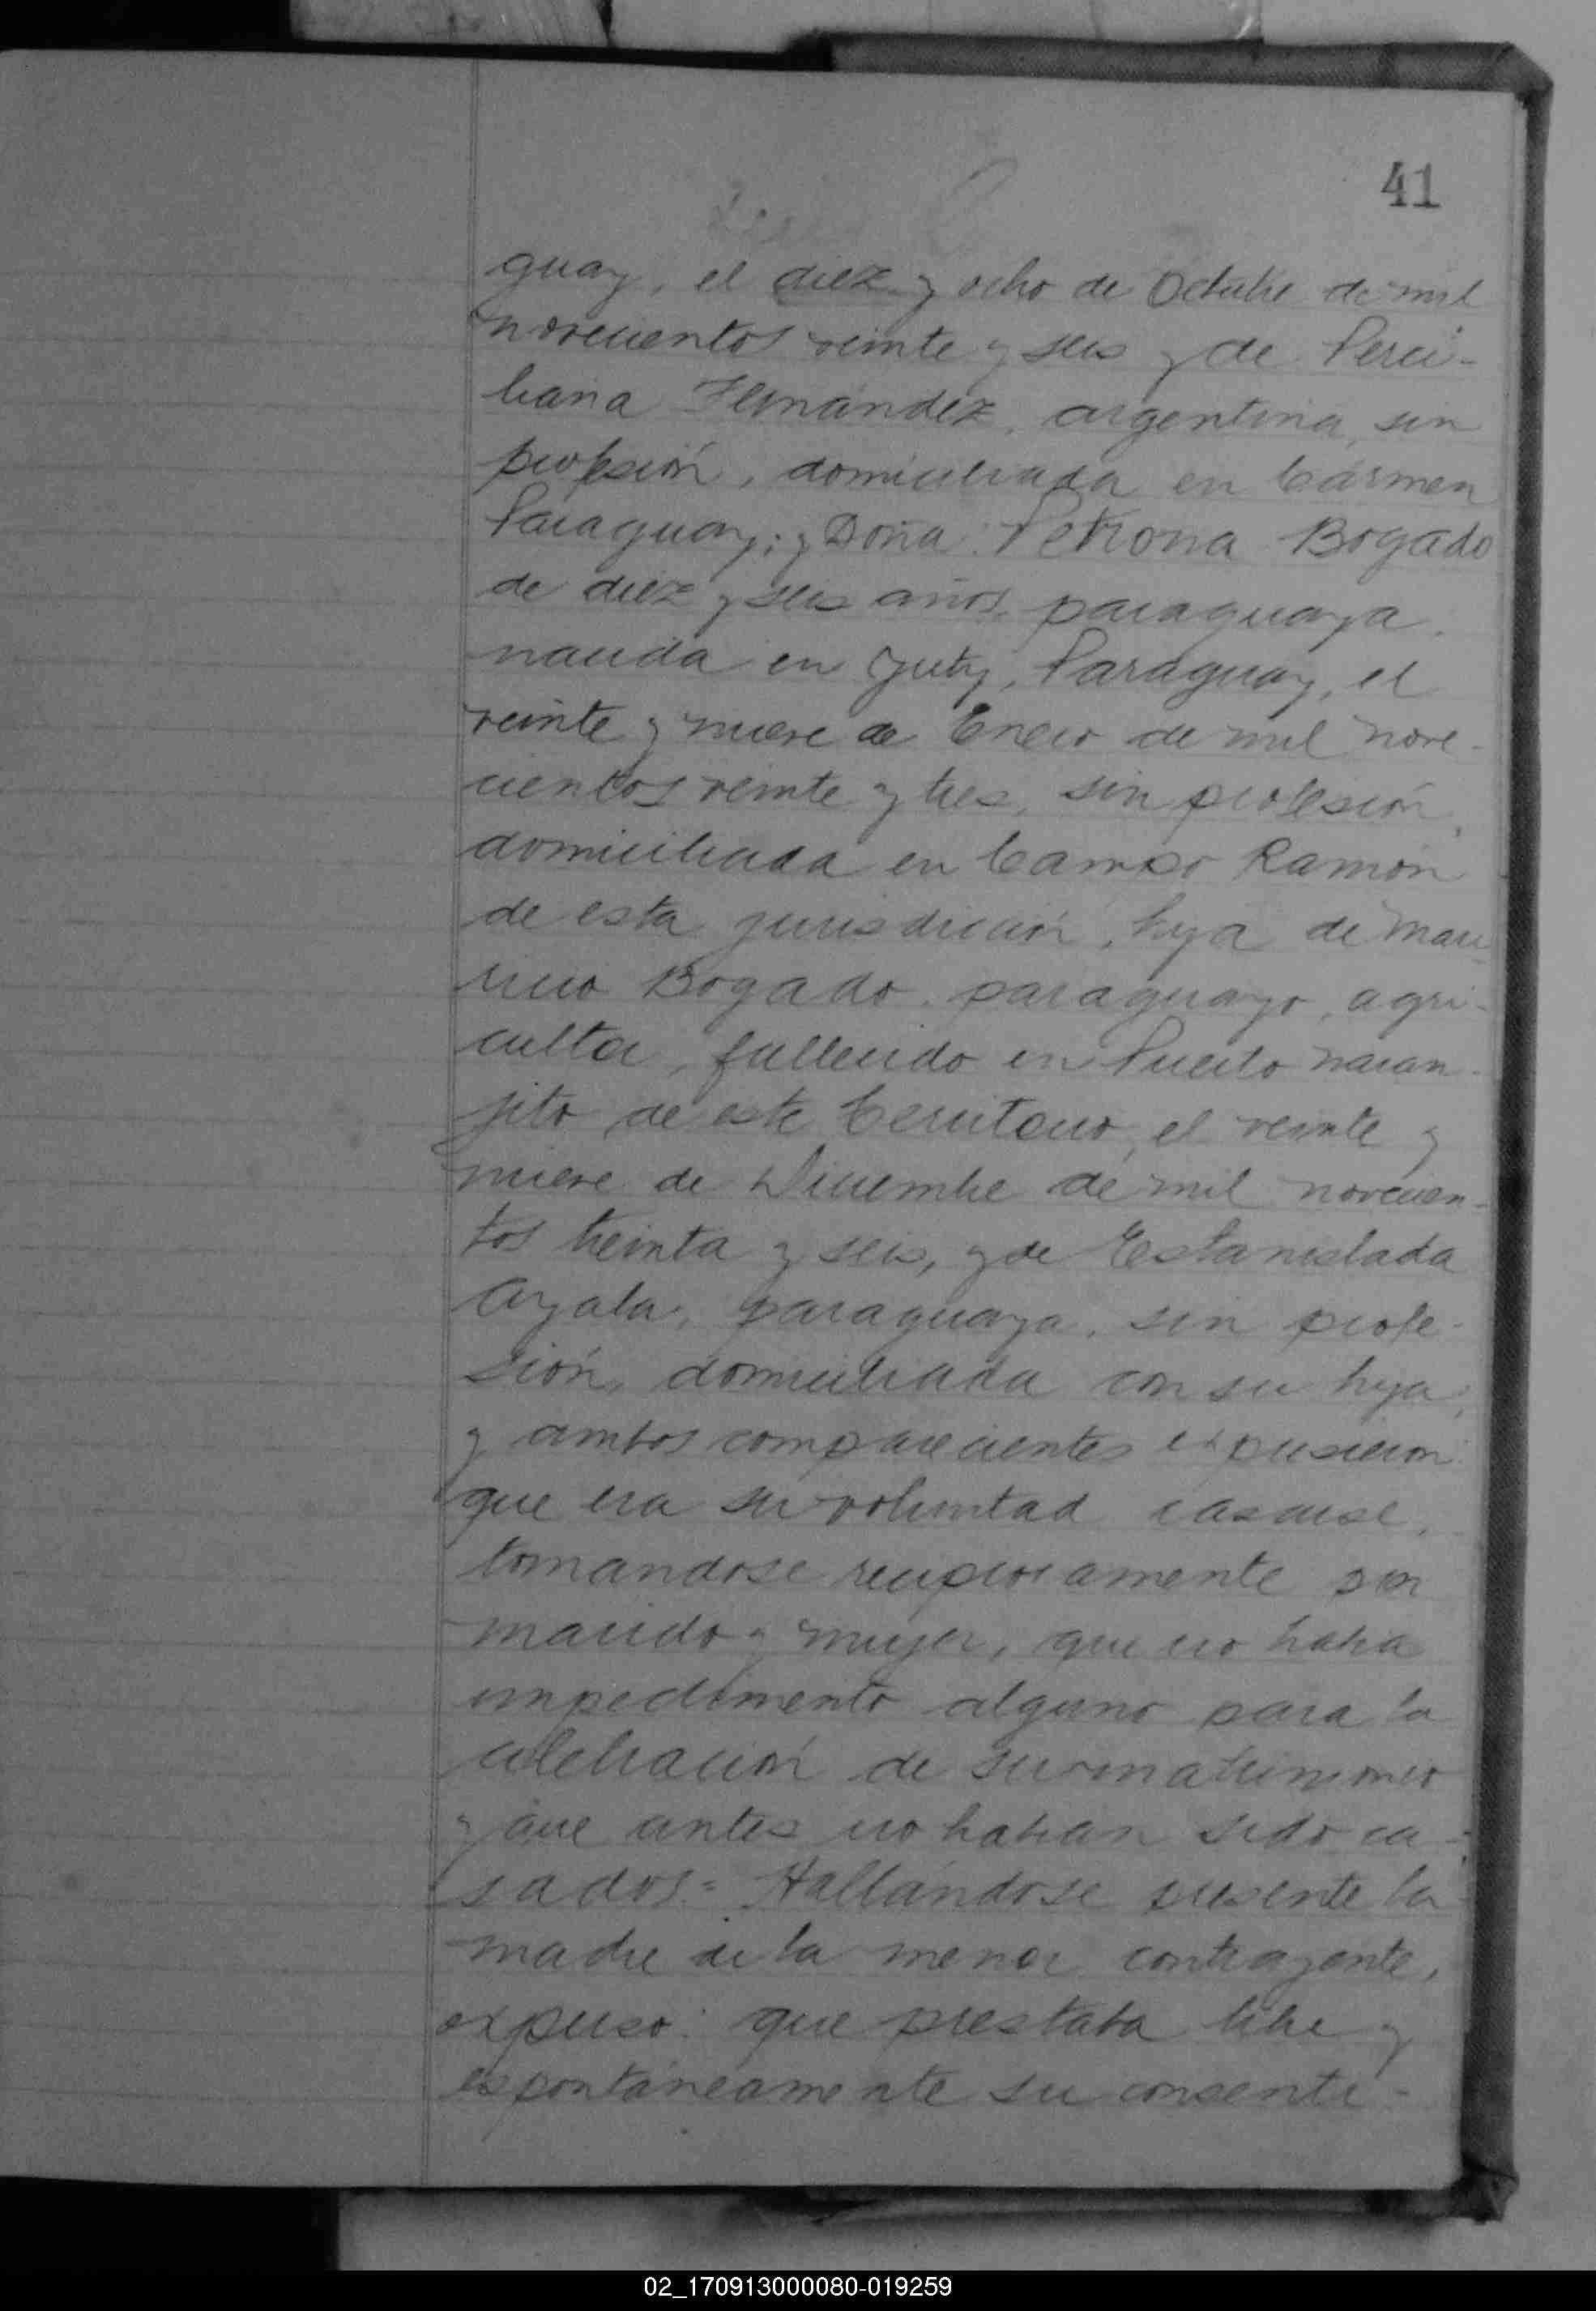 41
guay, el diez y ocho de Octubre de mil
novecientos veinte y seis y de Perci-
liana Fernández, argentina, sin
profesión, domiciliada en Cármen
Paraguay; y Doña: Petrona Bogado
de diez y seis años, paraguaya,
nacida en Yuty, Paraguay, el
veinte y nueve de Enero de mil nove-
cientos veinte y tres, sin profesión,
domiciliada en Campo Ramón
de esta jurisdicción, hija de Mau-
ricio Bogado, paraguayo, agri-
cultor, fallecido en Puerto Naran-
jito de este Territorio, el veinte y
nueve de Diciembre de mil novecien-
tos treinta y seis, y de Estanislada
Ayala, paraguaya, sin profe-
sión, domiciliada con su hija,
y ambos comparecientes expusieron:
que era su voluntad casarse,
tomandose reciprocamente por
marido y mujer, que no habia
impedimento alguno para la
celebración de su matrimonio
y que antes no habian sido ca-
sados.= Hallándose presente la
madre de la menor contrayente,
expuso: que prestaba libre y
espontáneamente su consenti-
02_170913000080-019259